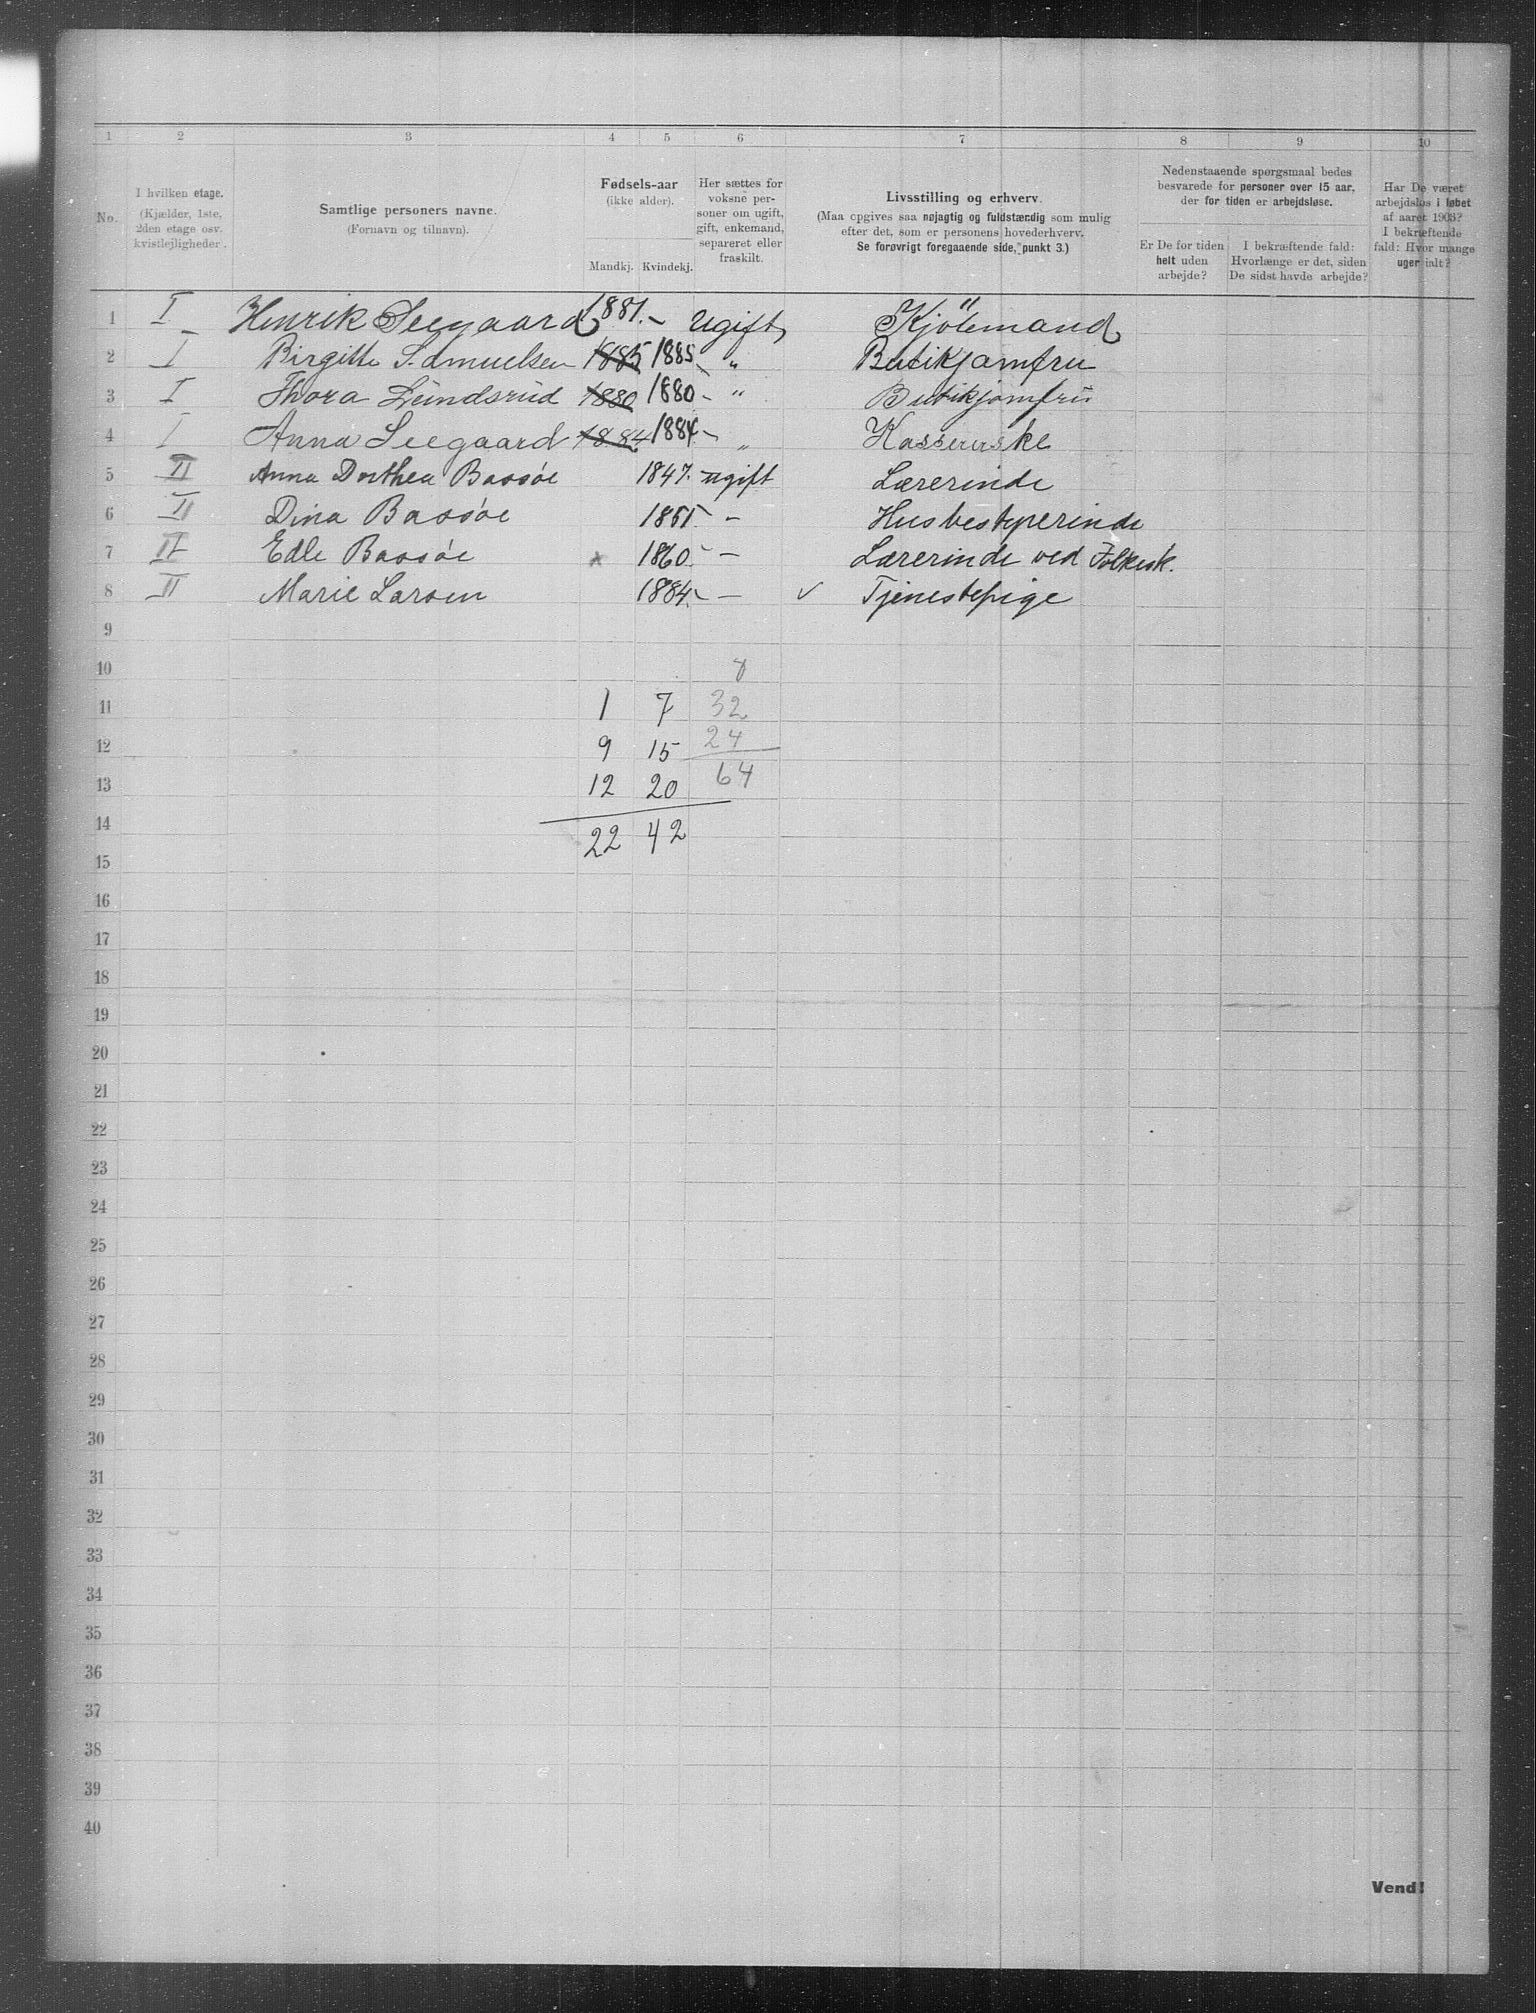 1 2 3 4 5 6 7 8 9 10
No. I hvilken etage. (Kjælder, 1ste, 2den etage osv. kvistlejligheder). Samtlige personers navne. (Fornavn og tilnavn). Fødsels-aar (ikke alder). Mandkj. Kvindekj. Her sættes for voksne personer om ugift, gift, enkemand, separeret eller fraskilt. Livsstilling og erhverv. (Maa opgives saa nøjagtig og fuldstændig som mulig efter det, som er personens hovederhverv. Se forøvrigt foregaaende side, punkt 3.) Nedenstaaende spørgsmaal bedes besvarede for personer over 15 aar, der for tiden er arbejdsløse. Er De for tiden helt uden arbejde? I bekræftende fald: Hvorlænge er det, siden De sidst havde arbejde? Har De været arbejdsløs i løbet af aaret 1903? I bekræftende fald: Hvor mange uger ialt?
1 I Henrik Seegaard 1881. – Ugift Kjötmand
2 I Birgitte Samuelsen 1885 1885 „ Butikjomfru
3 I Thora Lundsrud 1880 1880 – „ Butikjomfru
4 I Anna Seegaard 1884 1884 – „ Kassererske
5 II Anna Dorthea Bassøe 1847. ugift Lærerinde
6 II Dina Bassøe 1851. – Husbestyrerinde
7 II Edle Bassøe 1860. – Lærerinde ved Folkesk.
8 II Marie Larsen 1884. – ✓ Tjenestepige
9
10 8
11 1 7 32
12 9 15 24
13 12 20 64
14 22 42
15
16
17
18
19
20
21
22
23
24
25
26
27
28
29
30
31
32
33
34
35
36
37
38
39
40
Vend!